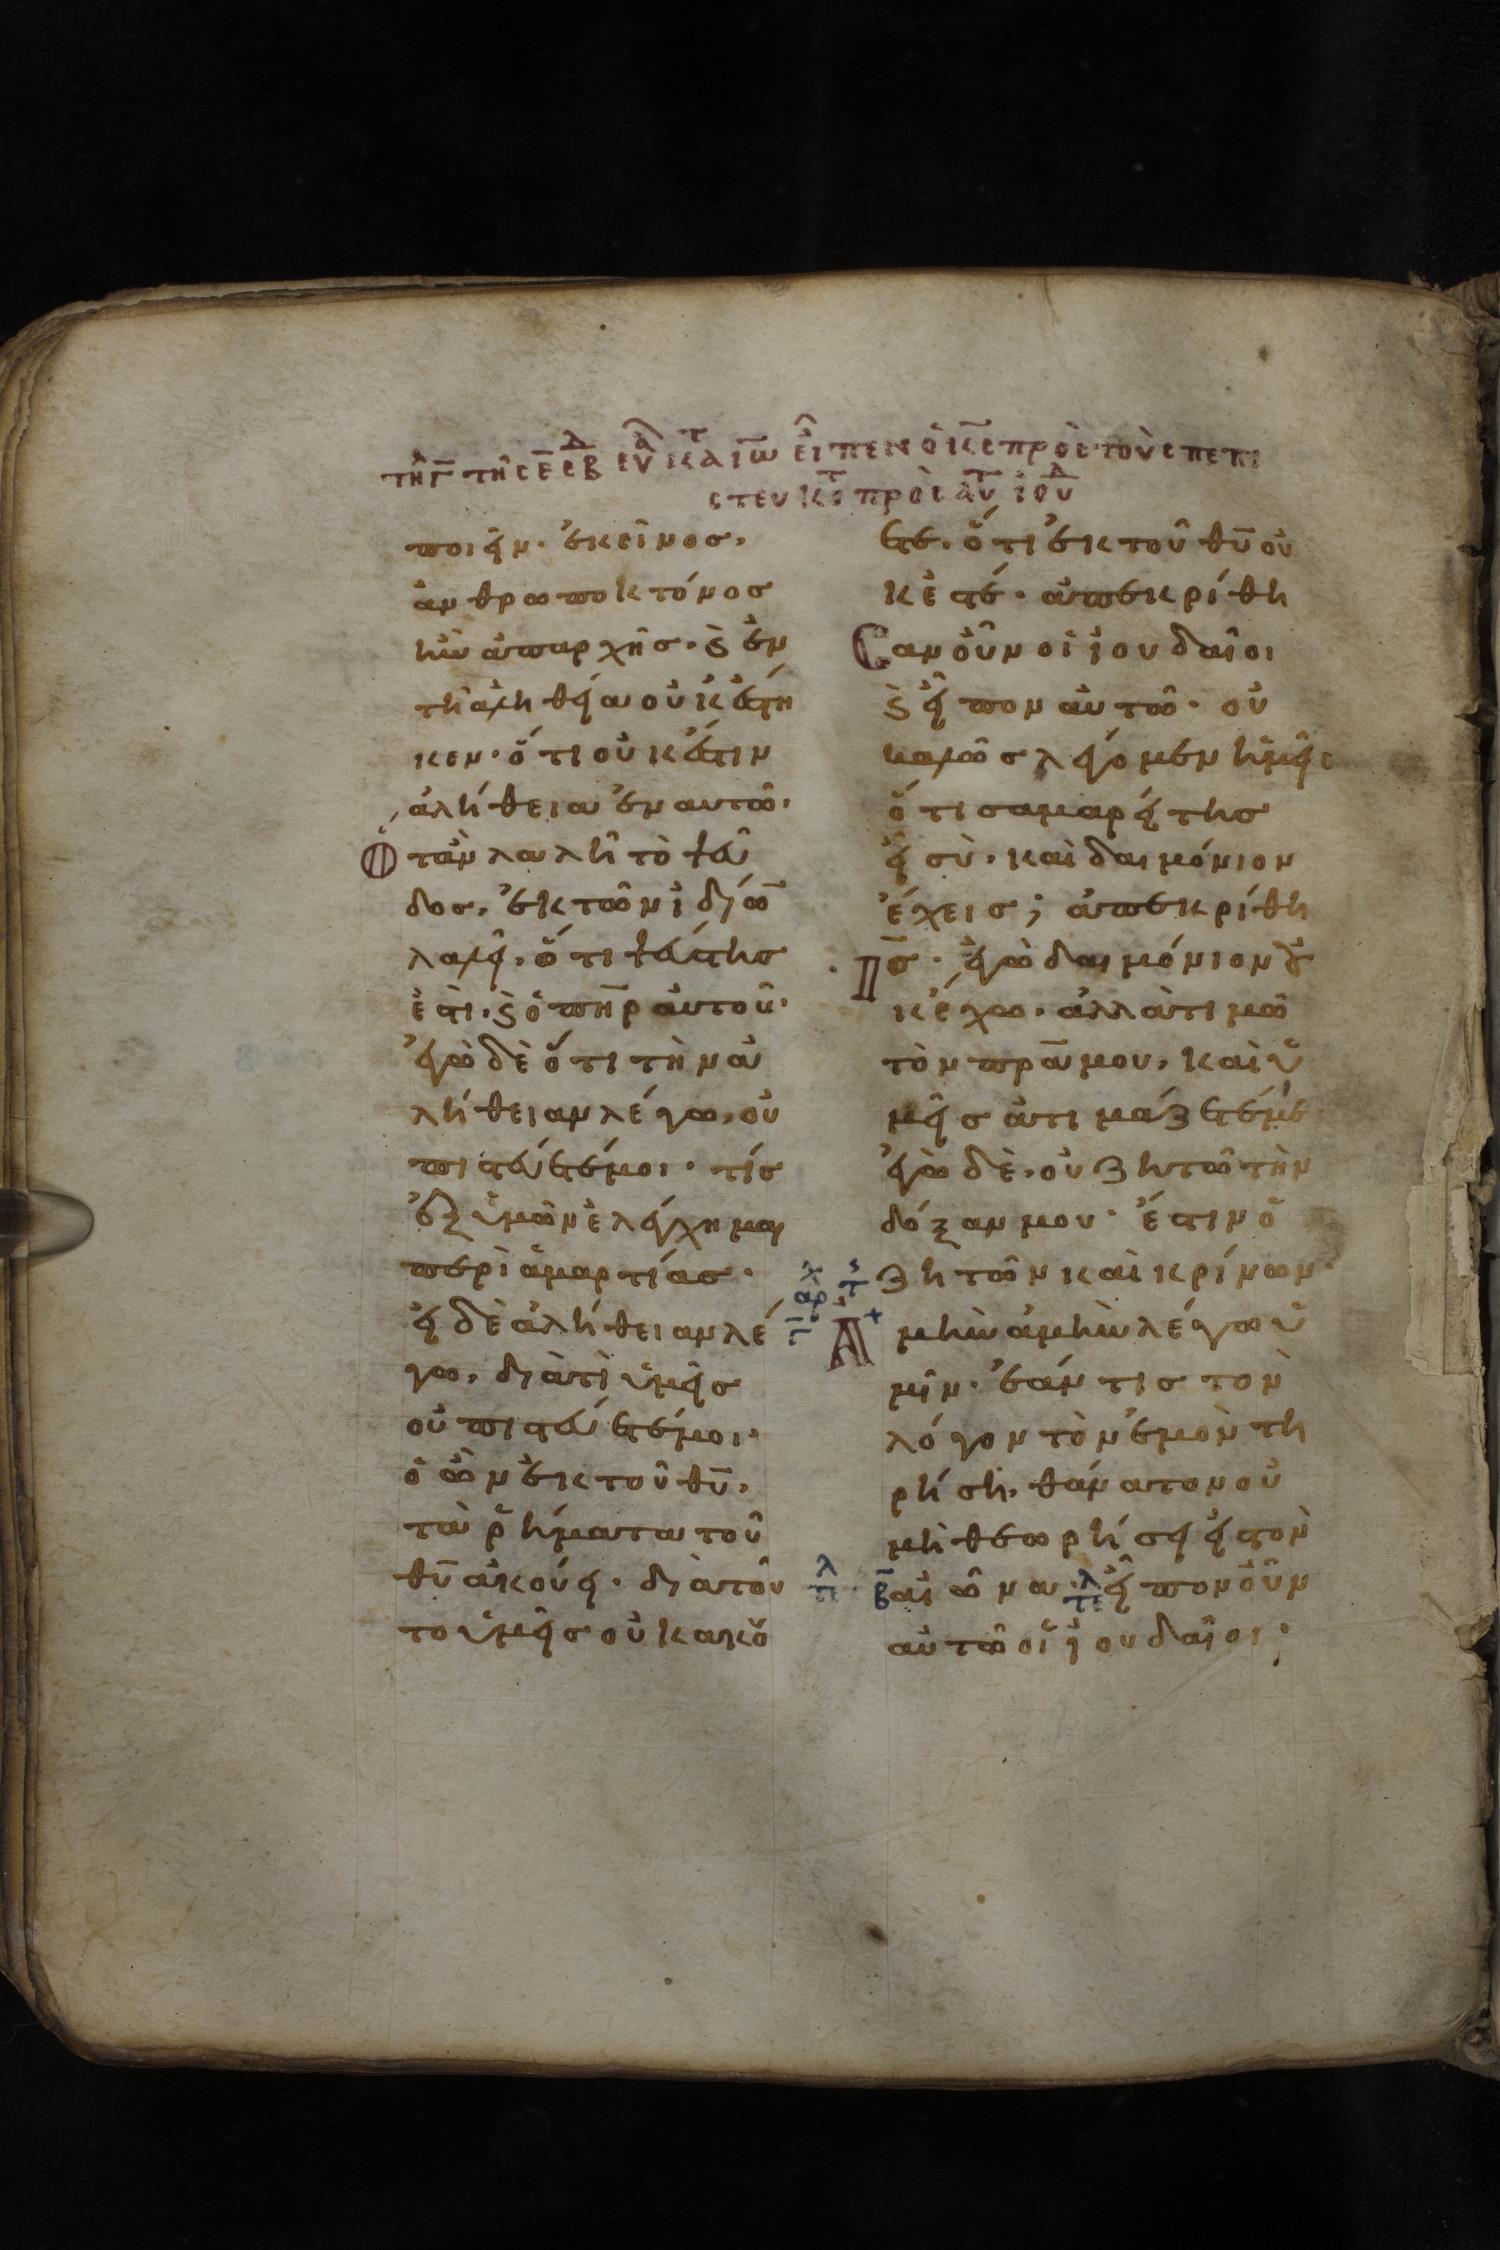 τῆ γ̅ τῆς ε̅ εβδ ευα κατ ιω̅ εἶπεν ὁ κ̅ς πρὸς τοὺς πεπι
στευκοτ πρὸς αὐτ ἰουδ
ποιεῖν· ἐκεῖνος,
ἀνθρωποκτόνος
ἦν ἀπαρχῆς· ϗ ἐν
τῆ ἀληθεία οὐκ ἔστη
κεν· ὅτι οὐκ ἔστιν
ἀλήθεια ἐν αυτῶ·
Ὅταν λαλῆ τὸ ψεῦ
δος, ἐκ τῶν ἰδίων
λαλεῖ, ὅτι ψεύστης
ἐστι, ϗ ὁ πη̅ρ αὐτοῦ·
ἐγὼ δὲ ὅτι τὴν ἀ
λήθειαν λέγω, οὐ
πιστεύετέ μοι· τίς
ἐξ ὑμῶν ἐλέγχη μαι
περὶ ἁμαρτίας·
εἰ δὲ ἀλήθειαν λέ
γω, διατὶ ὑμεῖς
οὐ πιστεύετέ μοι·
ὁ ὢν ἐκ τοῦ θυ̅,
τὰ ῥήματα τοῦ
θυ̅ ἀκούει· διατοῦ
το ὑμεῖς οὐκ ἀκού
ετε, ὅτι ἐκ τοῦ θυ̅ οὐ
κ ἐστέ· ἀπεκρίθη
σαν οὖν οἱ ἰουδαῖοι
ϗ εἶπον αὐτῶ· οὐ
καλῶς λέγομεν ἡμεῖς
ὅτι σαμαρείτης
εἶ σὺ, καὶ δαιμόνιον
ἔχεις; ἀπεκρίθη
ι̅ς· ἐγὼ δαιμόνιον οὐ
κ ἔχω, ἀλλὰ τιμῶ
τὸν πρ̅α μου, καὶ ὑ
μεῖς ἀτιμάζετέ με·
ἐγὼ δὲ, οὐ ζητῶ τὴν
δόξαν μου· ἔστιν ὁ
ζητῶν καὶ κρίνων·
Ἀμὴν ἀμὴν λέγω ὑ
μῖν· ἐάν τις τὸν
λόγον τὸν ἐμὸν τη
ρήση, θάνατον οὐ
μὴ θεωρήσει εἰς τὸν
αἰῶνα· εἶπον οὖν
αὐτῶ οἱ ἰουδαῖοι;